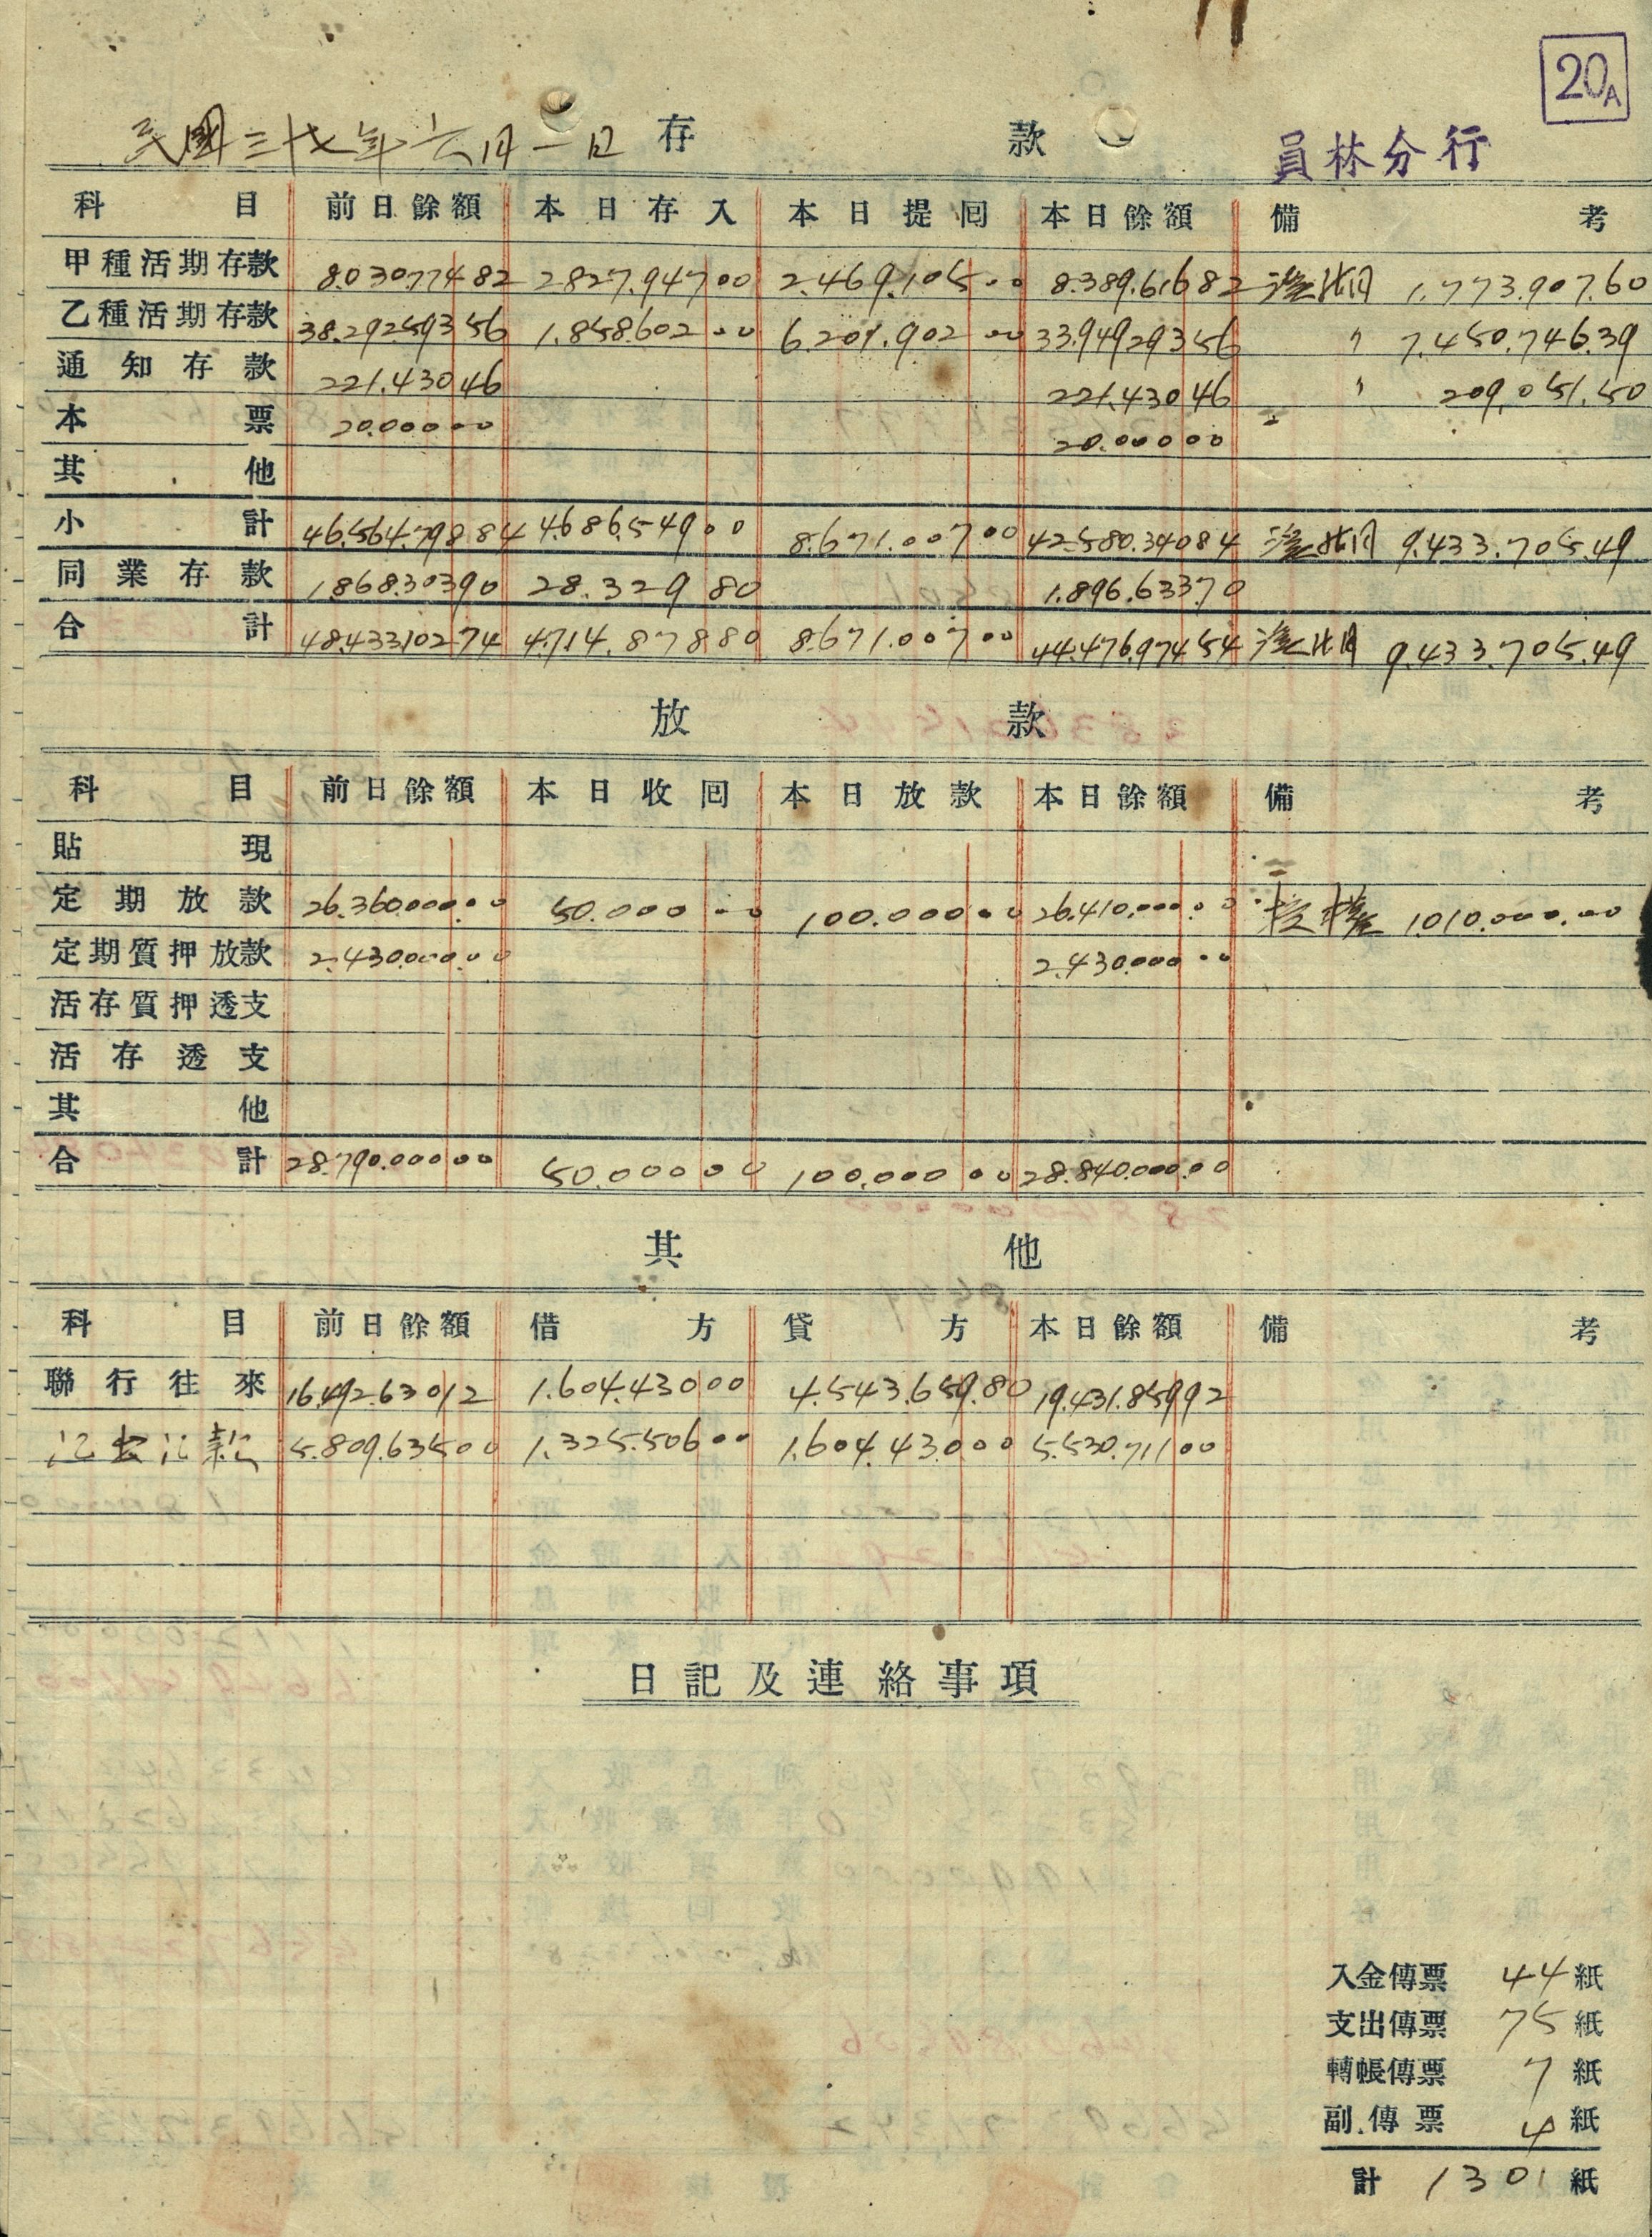 20A
民國三十七年六月一日 存款 員林分行
科目 前日餘額 本日存入 本日提回 本日餘額 備考
甲種活期存款 8.030.774 82 2827.947 00 2.469.105 00 8.389.616 82 1.773.907.60
乙種活期存款 38.292.593 56 1.858.602 00 6.201.902 00 33.949.293 56 〃 7.450.746.39
通知存款 221.430 46 221.430 46 〃 209.051.50
本票 20.000 00 20.000 00
其他
小計 46.564.798 84 4.686.549 00 8.671.007 00 42.580.340 84 9.433.705.49
同業存款 1.868.303 90 28.329 80 1.896.633 70
合計 48.433.102 74 4.714.878 80 8.671.007 00 44.476.974 54 9.433.705.49
放款
科目 前日餘額 本日收回 本日放款 本日餘額 備考
貼現
定期放款 26.360.000.00 50.000 00 100.000 00 26.410.000.00 1.010.000.00
定期質押放款 2.430.000.00 2.430.000 00
活存質押透支
活存透支
其他
合計 28.790.000 00 50.000 00 100.000 00 28.840.000.00
其他
科目 前日餘額 借方 貸方 本日餘額 備考
聯行往來 16.492.630 12 1.604.430 00 4.543.659.80 19.431.859 92
5.809.635 00 1.325.506 00 1.604.430 00 5.530.711 00
日記及連絡事項
入金傳票 44 紙
支出傳票 75 紙
轉帳傳票 7 紙
副傳票 4 紙
計 1301 紙